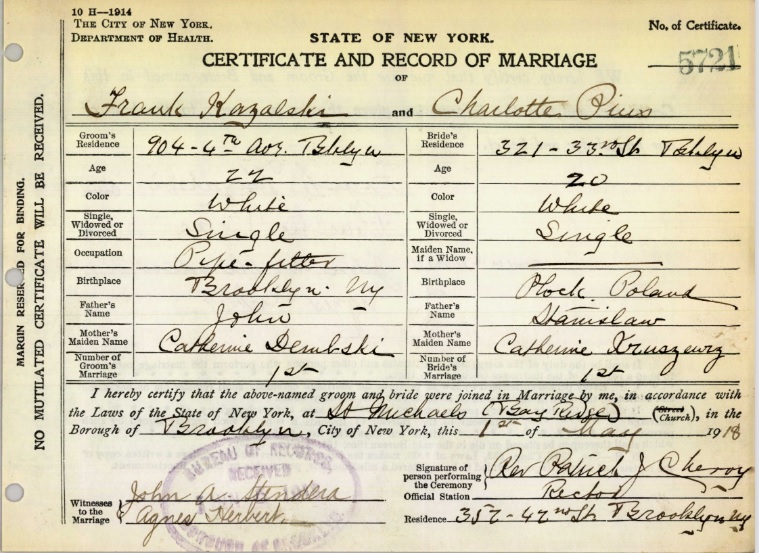 10 H—1914
THE CITY OF NEW YORK.
DEPARTMENT OF HEALTH.
STATE OF NEW YORK.
No. of Certificate.
5721
CERTIFICATE AND RECORD OF MARRIAGE
OF
Frank Kazalski and Charlotte Pius
Groom's Residence 904-4th Ave. Bklyn
Bride's Residence 321-33rd St Bklyn
Age 22
Age 20
Color White
Color White
Single, Widowed or Divorced Single
Single, Widowed or Divorced Single
Occupation Pipe-fitter
Maiden Name, if a Widow
Birthplace Brooklyn. Ny
Birthplace Plock. Poland
Father's Name John
Father's Name Stanislaw
Mother's Maiden Name Catherine Dembski
Mother's Maiden Name Catherine Kruszewz
Number of Groom's Marriage 1st
Number of Bride's Marriage 1st
I hereby certify that the above-named groom and bride were joined in Marriage by me, in accordance with
the Laws of the State of New York, at St Michaels (Bay Ridge) (Street Church), in the
Borough of Brooklyn, City of New York, this 1st of May 1918
Signature of person performing the Ceremony Rev Patrick J Cherry
Official Station Rector
Residence 352-42nd St Brooklyn Ny
Witnesses to the Marriage John A.
Agnes Herbert
BUREAU OF RECORDS
RECEIVED
MARGIN RESERVED FOR BINDING.
NO MUTILATED CERTIFICATE WILL BE RECEIVED.